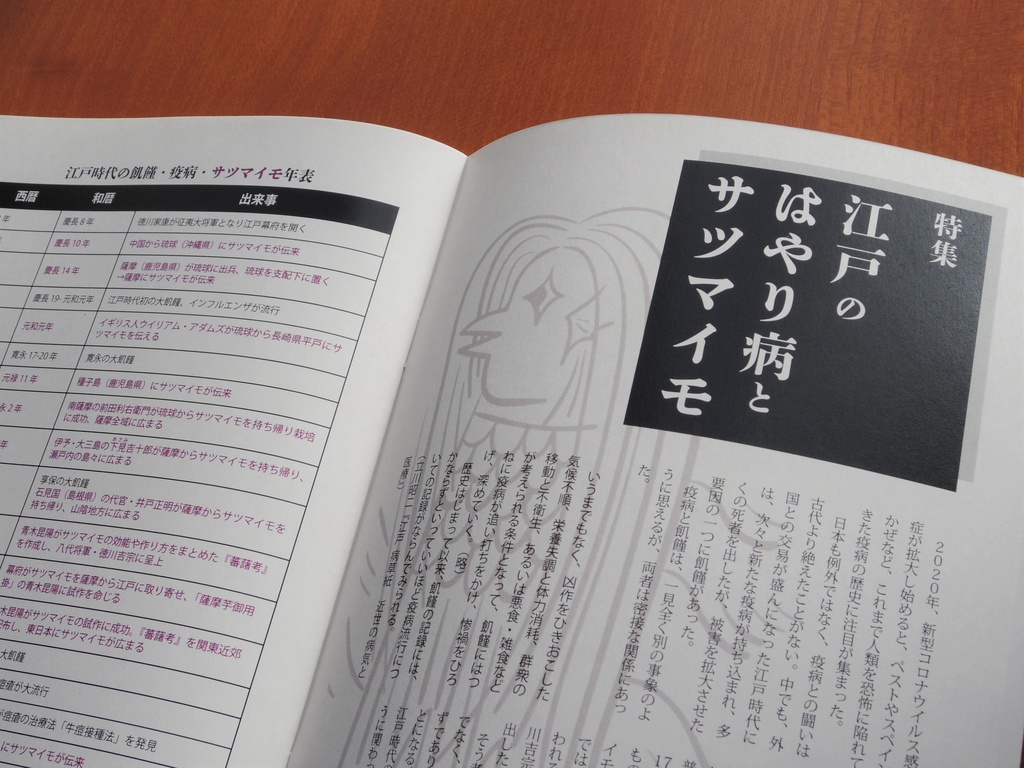 江戸時代の飢饉・疫病・サツマイモ年表
西暦 和暦 出来事
年 慶長8年 徳川家康が征夷大将軍となり江戸幕府を開く
慶長10年 中国から琉球（沖縄県）にサツマイモが伝来
慶長14年 薩摩（鹿児島県）が琉球に出兵、琉球を支配下に置く
→薩摩にサツマイモが伝来
慶長19-元和元年 江戸時代初の大飢饉、インフルエンザが流行
元和元年 イギリス人ウイリアム・アダムズが琉球から長崎県平戸にサ
ツマイモを伝える
寛永17-20年 寛永の大飢饉
元禄11年 種子島（鹿児島県）にサツマイモが伝来
永2年 南薩摩の前田利右衛門が琉球からサツマイモを持ち帰り栽培
に成功、薩摩全域に広まる
年 伊予・大三島の下見吉十郎が薩摩からサツマイモを持ち帰り、
瀬戸内の島々に広まる
享保の大飢饉
石見国（島根県）の代官・井戸正明が薩摩からサツマイモを
持ち帰り、山陰地方に広まる
青木昆陽がサツマイモの効能や作り方をまとめた『蕃藷考』
を作成し、八代将軍・徳川吉宗に呈上
幕府がサツマイモを薩摩から江戸に取り寄せ、「薩摩芋御用
掛」の青木昆陽に試作を命じる
木昆陽がサツマイモの試作に成功。『蕃藷考』を関東近郊
布し、東日本にサツマイモが広まる
大飢饉
痘瘡が大流行
が痘瘡の治療法「牛痘接種法」を発見
にサツマイモが伝来
特集
江戸の
はやり病と
サツマイモ
2020年、新型コロナウイルス感
症が拡大し始めると、ペストやスペイン
かぜなど、これまで人類を恐怖に陥れて
きた疫病の歴史に注目が集まった。
日本も例外ではなく、疫病との闘いは
古代より絶えたことがない。中でも、外
国との交易が盛んになった江戸時代に
は、次々と新たな疫病が持ち込まれ、多
くの死者を出したが、被害を拡大させた
要因の一つに飢饉があった。
疫病と飢饉は、一見全く別の事象のよ
うに思えるが、両者は密接な関係にあっ
た。
いうまでもなく、凶作をひきおこした
気候不順、栄養失調と体力消耗、群衆の
移動と不衛生、あるいは悪食・雑食など
が考えられる条件となって、飢饉にはつ
ねに疫病が追い打ちをかけ、惨禍をひろ
げ、深めていく。（略）
歴史はじまって以来、飢饉の記録には、
かならずといっていいほど疫病流行につ
いての記録がならんでみられる。
（立川昭二『江戸 病草紙 近世の病気と
医療』）
普
17
もの
イモ
では
われる
川吉宗
出した
そう考
でなく、
ずであり
とになる
江戸時代の
うに関わっ